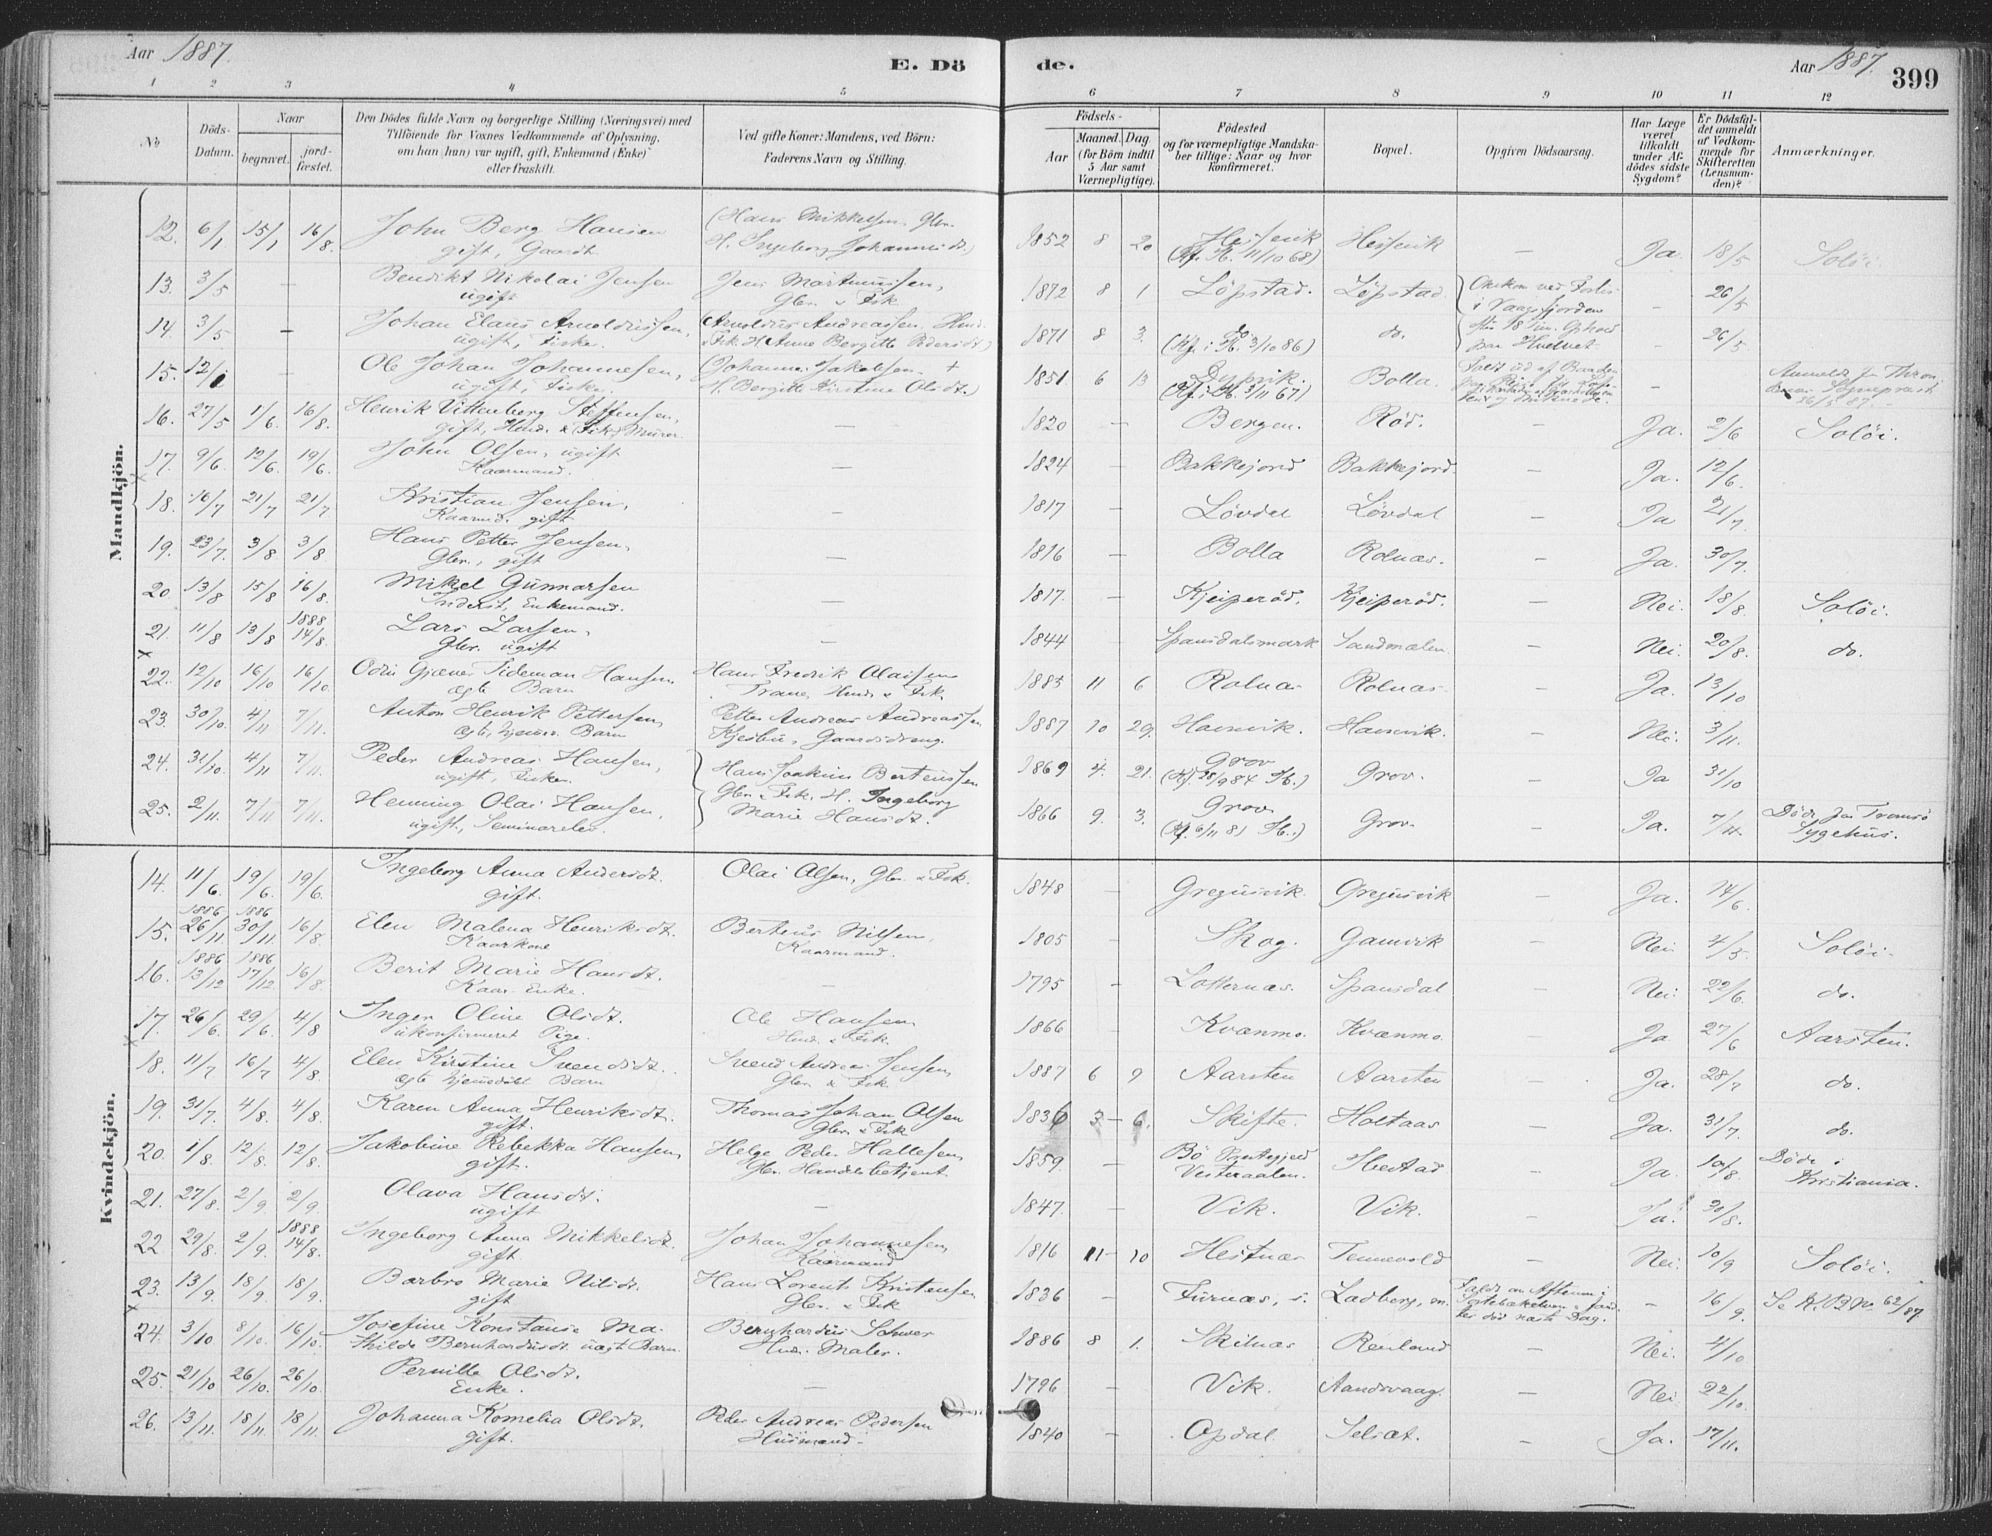 Aar 1887.
E. Dö
de.
Aar 1887.
399
1 2 3 4 5 6 7 8 9 10 11 12
No
Döds-Datum.
Naar
begravet.
jord-fæstet.
Den Dödes fulde Navn og borgerlige Stilling (Næringsvei) med
Tilföiende for Voxnes Vedkommende af Oplysning,
om han (hun) var ugift, gift, Enkemand (Enke)
eller fraskilt.
Ved gifte Koner: Mandens, ved Börn:
Faderens Navn og Stilling.
Födsels-
Aar
Maaned. Dag.
(for Börn indtil
5 Aar samt
Værnepligtige).
Födested
og for værnepligtige Mandska-
ber tillige: Naar og hvor
konfirmeret.
Bopæl.
Opgiven Dödsaarsag.
Har Læge
været
tilkaldt
under Af-
dödes sidste
Sygdom?
Er Dödsfal-
det anmeldt
af Vedkom-
mende for
Skifteretten
(Lensman-
den)?
Anmærkninger.
Mandkjön.
12. 6/1 15/1 16/8. John Berg Hansen (Hans Mikkelsen, Gbr.
gift, Gaardt. H. Ingeborg Johannesdt.)
1852 8 20 Hessevik Hessevik — Ja. 18/5 Solöi.
(Kf. Ib. 11/10 68)
13. 3/5 — Bendikt Nikolai Jensen Jens Martinussen,
ugift Gbr. & Fisk.
1872 8 1 Löpstad. Löpstad. Omkom ved Forlis i Vaagsfjorden — 26/5
14. 3/5 — Johan Elaus Arnoldussen, (Arnoldus Andreassen, Hmd.
ugift, Fisker. & Fisk. H. Anne Bergitte Pedersdt.)
1871 8 3. do do. — 26/5
(Kf. i Ib. 3/10 86)
15. 12/1 — Ole Johan Johannesen, (Johannes Jakobsen +
ugift, Fisker. H. Bergitte Kirstine Olsdt.)
1851. 6 13 Dyprik. Bolla. —
(Kf. i Ib. 3/11 67)
16. 27/5 1/6. 16/8. Henrik Vittenberg Steffensen, —
gift, Hmd. & Fisk, Murer.
1820 — Bergen. Röd. Ja. 2/6 Solöi.
17. 9/6. 12/6. 19/6. John Olsen, ugift —
Kaarmand.
1824 — Bakkejord Bakkejord — Ja. 12/6.
18. 16/7 21/7 21/7 Kristian Jensen, —
Kaarmd. gift
1817 — Lövdal Lövdal — Ja 21/7.
19. 23/7. 3/8 3/8 Hans Petter Jensen, —
Gbr., gift
1816 — Bolla Rolnæs. — Ja. 30/7.
20 13/8 15/8 16/8 Mikel Gunnarsen —
Inderst, Enkemand.
1817. — Kjeiperöd. Kjeiperöd. — Nei. 18/8. Solöi.
21. 11/8 13/8 1888 14/8. Lars Larsen, —
Gbr. ugift
1844 — Spansdalsmark Sandmælen. — Nei. 20/8. do.
22. 12/10 16/10 16/10 Odin Gjæver Tideman Hansen Hans Fredrik Olaisen
ægte Barn Trane, Hmd. & Fisk.
1885 11 6 Rolnæs Rolnæs. — Ja. 13/10
23. 30/10. 4/11 7/11. Anton Henrik Pettersen, Petter Andreas Andreassen
ægte, hjemmed. Barn Kjesbu, Gaardsdreng.
1887 10 29. Hamvik. Hamvik. — Nei. 3/11.
24. 31/10. 4/11 7/11. Peder Andreas Hansen, Hans Joakim Berteussen
ugift, Fisker. Gbr. & Fisk. H. Ingeborg
1869 4. 21. Grov Grov. — Ja 31/10
(Kf. 28/9 84 Ib.)
25. 2/11. 7/11 7/11. Henning Olai Hansen, Marie Hansdt.
ugift, Seminarelev.
1866 9. 3. Grov Grov. — Ja. 7/11. Döde paa Tromsö
(Kf. 6/11 81 Ib.) Sygehus.
Kvindekjön.
14. 11/6. 19/6. 19/6. Ingeborg Anna Andersdt. Olai Olsen, Gbr. & Fisk.
gift.
1848 — Gregusvik. Gregusvik — Ja. 14/6.
15. 1886 26/11 1886 30/11 16/8 Elen Malena Henriksdt. Berteus Nilsen,
Kaarkone Kaarmand.
1805 — Skog. Gamvik — Nei 4/5. Solöi.
16. 1886 13/12 1886 17/12 16/8. Berit Marie Hansdt. —
Kaar-Enke.
1795 — Lotternæs. Spansdal — Nei. 22/6. do.
17. 26/6. 29/6. 4/8 Inger Oline Olsdt. Ole Hansen
ukonfirmeret Pige. Hmd. & Fisk
1866 — Kvænmo. Kvænmo. — Ja 27/6 Aarsten.
18. 11/7 16/7 4/8. Elen Kirstine Svendsdt. Svend Andreas Jensen,
ægte hjemmedöbt Barn Gbr. & Fisk.
1887 6 9 Aarsten Aarsten — Ja. 28/7 do.
19. 31/7. 4/8. 4/8. Karen Anna Henriksdt. Thomas Johan Olsen
gift. Gbr. & Fisk
1836 3 — 6. Skifte. Holtaas — Ja. 31/7. do.
20. 1/8. 12/8. 12/8. Jakobine Rebekka Hansen, Helge Peder Hallesen,
gift. Gbr. Handelsbetjent.
1859. — Bö Præstegjeld Ibestad — Ja. 10/8. Döde i
Vesteraalen. Kristiania.
21. 27/8 2/9 2/9. Olava Hansdt. —
ugift
1847. — Vik. Vik. — Ja. 30/8.
22 29/8. 2/9. 1888 14/8. Ingeborg Anna Mikkelsdt. Johan Johannesen,
gift. Kaarmand
1816 11 — 10 Hestnæs Tennevold — Nei. 10/9 Solöi.
23. 13/9. 18/9. 18/9. Barbro Marie Nilsdt. Hans Lorents Kristensen
gift Gbr. & Fisk
1836 — Furnæs, Ladberg, — 16/9. Se K. B. No. 62/87
24. 3/10 8/10. 16/10. Josefine Konstanse Ma- Bernhardus Schwer
thilde Bernhardusdt. uægt. Barn. Hmd. Maler.
1886 8 1. Skilnæs Renland — Nei. 4/10
25. 21/10 26/10. 26/10. Pernille Olsdt. —
Enke.
1796 — Vik. Aandsvaag. — Nei 22/10.
26. 13/11. 18/11. 18/11. Johanna Kornelia Olsdt. Peder Andreas Pedersen
gift. Husmand.
1840 — Opdal. Selsæt. — Ja. 17/11.